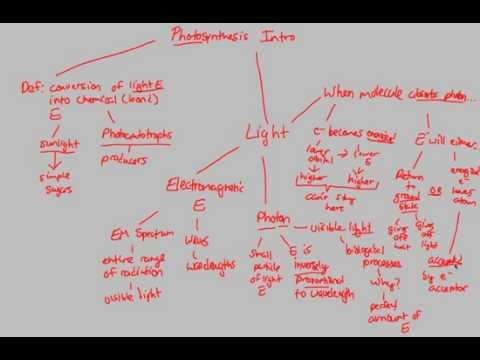 Photosynthesis Intro
Def: conversion of light E
into chemical (bond)
E
sunlight
simple
sugars
Photoautotrophs
producers
Light
Electromagnetic
E
EM Spectrum
entire range
of radiation
visible light
waves
wavelengths
Photon
small
particle
of light
E
E is
inversely
proportional
to wavelength
visible light
biological
processes
why?
perfect
amount of
E
When molecule absorbs photon...
e- becomes energized
lower → lower
orbital E
higher higher
can't stay
here
E will either
Return
to
ground
state
OR
energized
e- leaves
atom
gives
off
heat
gives
off
light
accepted
by e-
acceptor